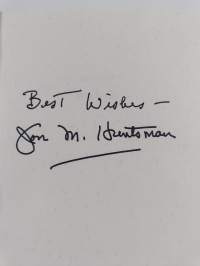 Best Wishes —
Jon M. Huntsman